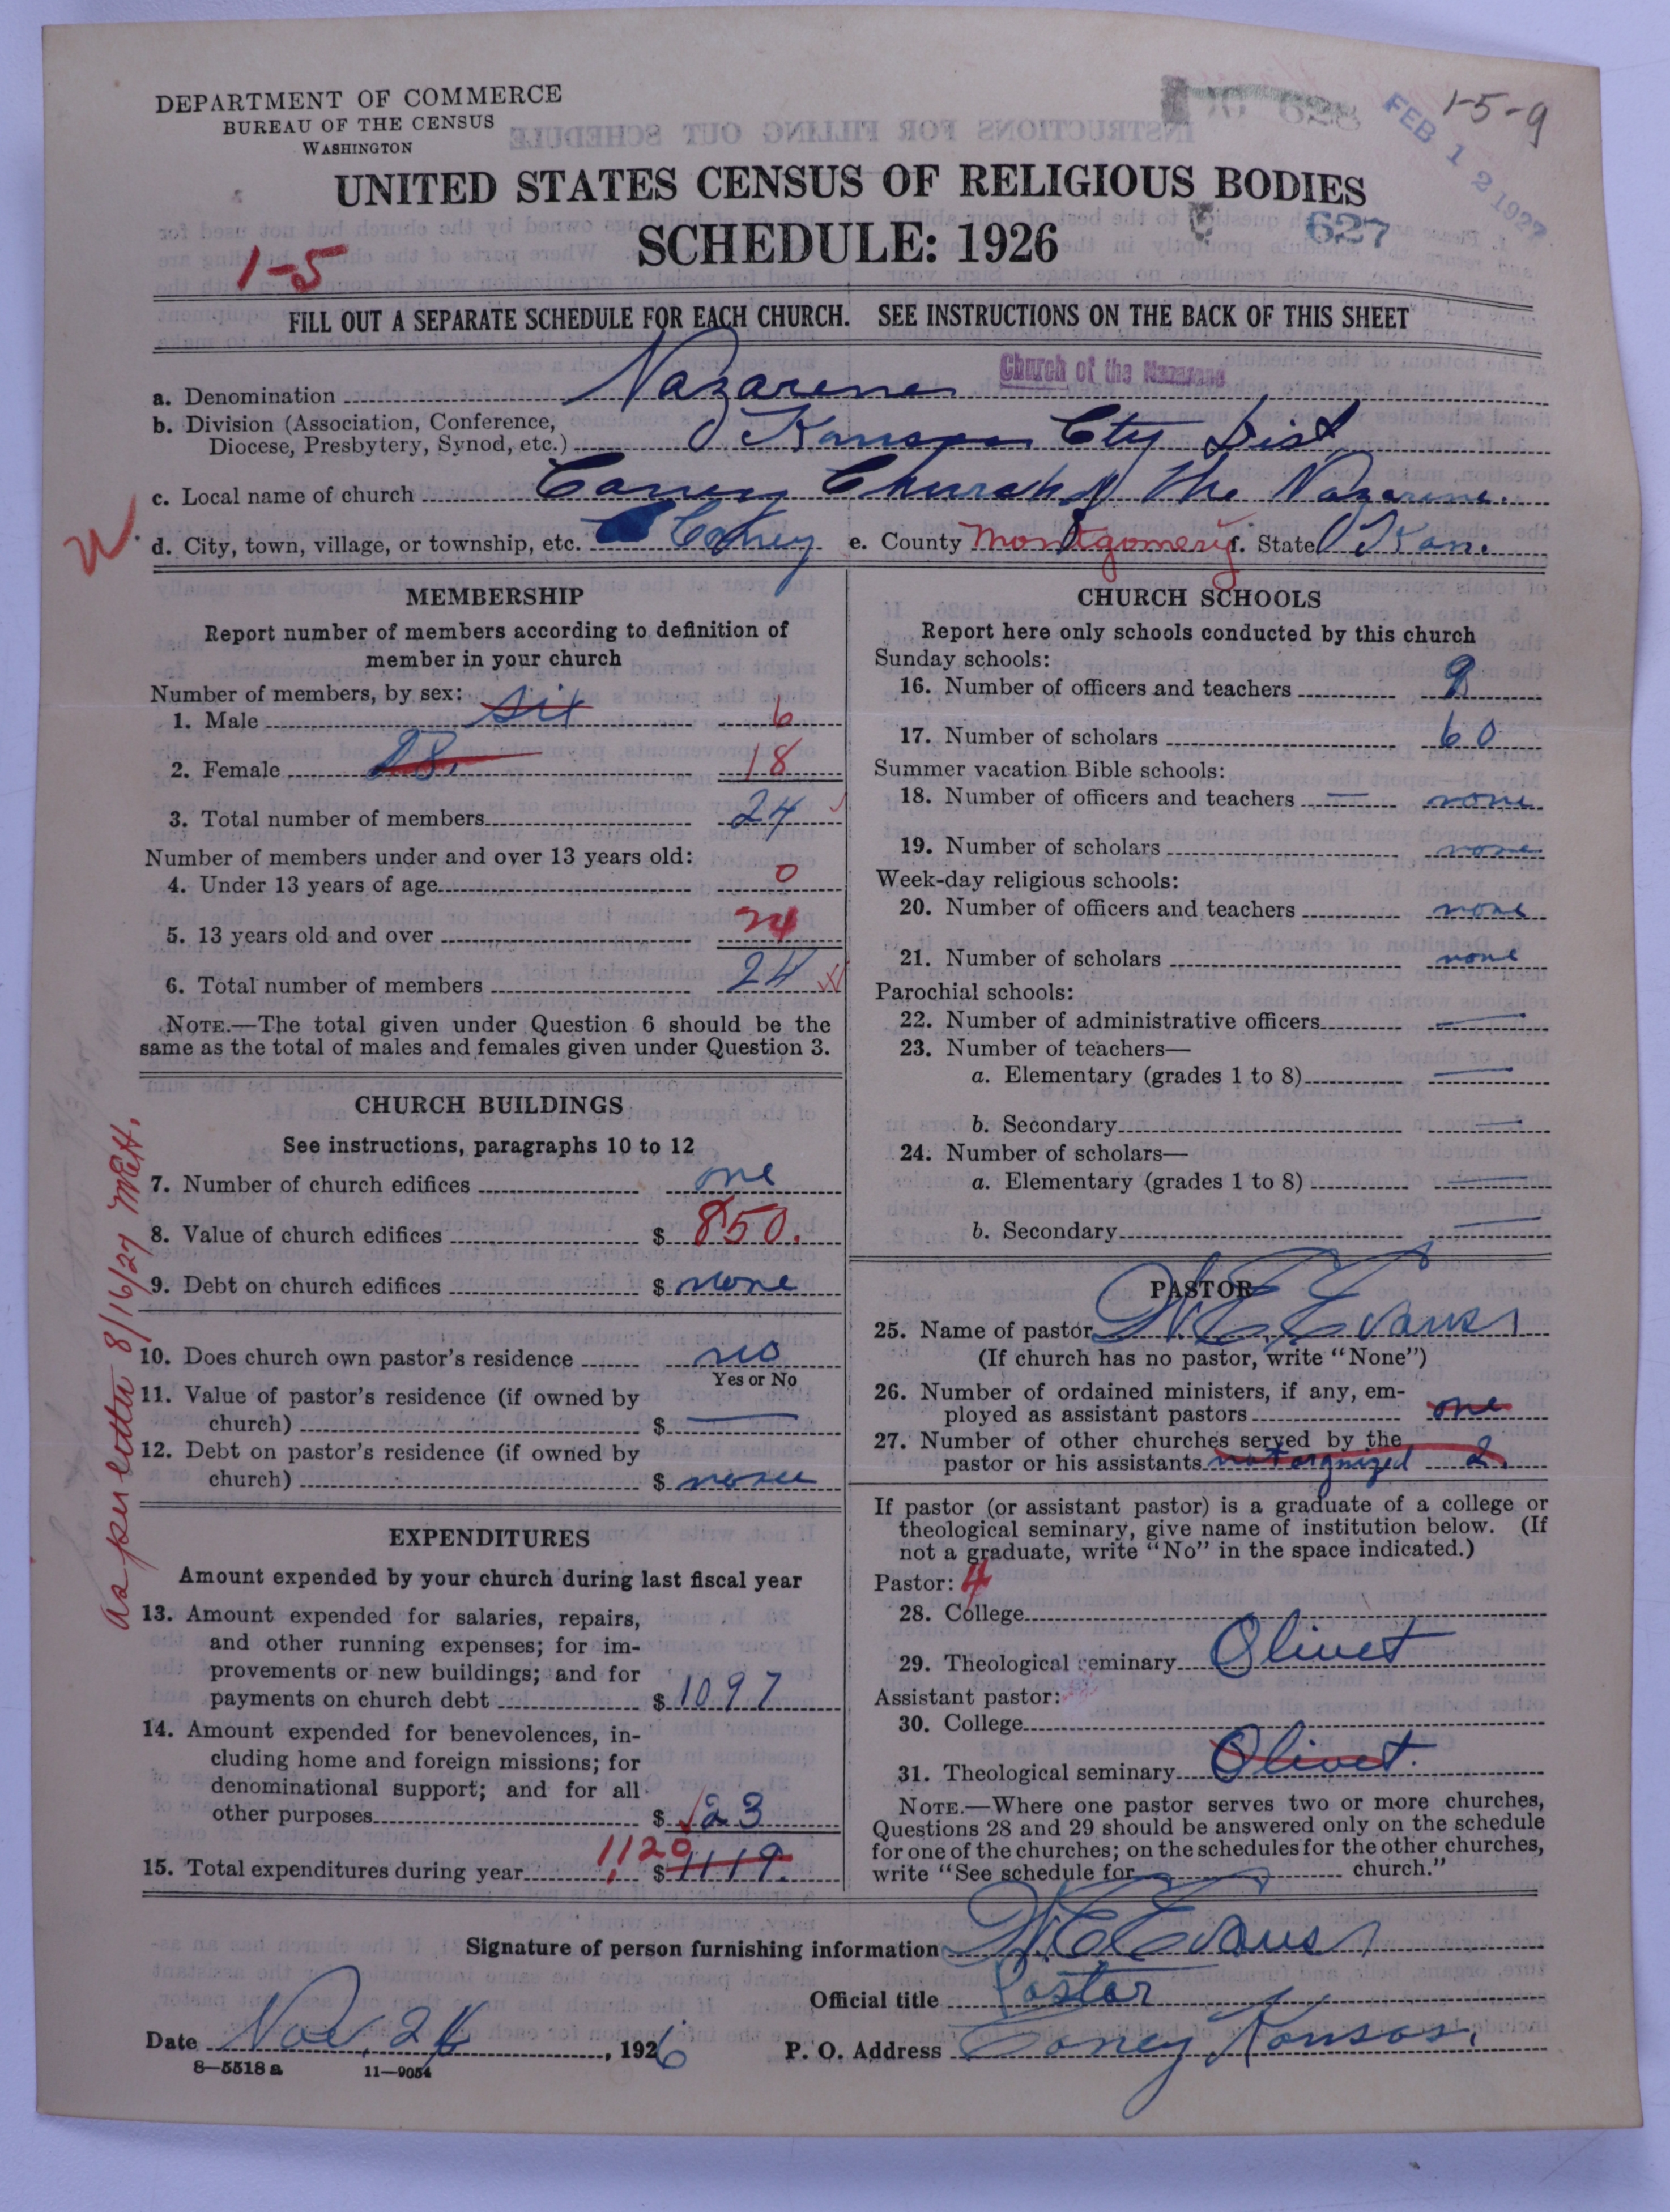 DEPARTMENT OF COMMERCE
BUREAU OF THE CENSUS
WASHINGTON
1-5-9
FEB 12 1927
UNITED STATES CENSUS OF RELIGIOUS BODIES
SCHEDULE: 1926
627
1-5
FILL OUT A SEPARATE SCHEDULE FOR EACH CHURCH. SEE INSTRUCTIONS ON THE BACK OF THIS SHEET
a. Denomination Nazarene Church of the Nazarene
b. Division (Association, Conference,
Diocese, Presbytery, Synod, etc.) Kansas City Dist
c. Local name of church Caney Church of the Nazarene.
d. City, town, village, or township, etc. Caney e. County Montgomery f. State Kan.
MEMBERSHIP
Report number of members according to definition of
member in your church
Number of members, by sex:
1. Male six 6
2. Female 18
3. Total number of members 24
Number of members under and over 13 years old:
4. Under 13 years of age 0
5. 13 years old and over 24
6. Total number of members 24
NOTE.—The total given under Question 6 should be the
same as the total of males and females given under Question 3.
CHURCH BUILDINGS
See instructions, paragraphs 10 to 12
7. Number of church edifices one
8. Value of church edifices $ 850.
9. Debt on church edifices $ none
10. Does church own pastor's residence no
Yes or No
11. Value of pastor's residence (if owned by
church) $ —
12. Debt on pastor's residence (if owned by
church) $ none
as per letter 8/16/27 MEH.
EXPENDITURES
Amount expended by your church during last fiscal year
13. Amount expended for salaries, repairs,
and other running expenses; for im-
provements or new buildings; and for
payments on church debt $ 1097
14. Amount expended for benevolences, in-
cluding home and foreign missions; for
denominational support; and for all
other purposes $ 23
15. Total expenditures during year 1120 $ 1119.
CHURCH SCHOOLS
Report here only schools conducted by this church
Sunday schools:
16. Number of officers and teachers 9
17. Number of scholars 60
Summer vacation Bible schools:
18. Number of officers and teachers — none
19. Number of scholars none
Week-day religious schools:
20. Number of officers and teachers none
21. Number of scholars none
Parochial schools:
22. Number of administrative officers —
23. Number of teachers—
a. Elementary (grades 1 to 8) —
b. Secondary —
24. Number of scholars—
a. Elementary (grades 1 to 8) —
b. Secondary —
PASTOR
25. Name of pastor W E Evans
(If church has no pastor, write "None")
26. Number of ordained ministers, if any, em-
ployed as assistant pastors one
27. Number of other churches served by the
pastor or his assistants not orgnized 2
If pastor (or assistant pastor) is a graduate of a college or
theological seminary, give name of institution below. (If
not a graduate, write "No" in the space indicated.)
Pastor: 4
28. College
29. Theological seminary Olivet
Assistant pastor:
30. College
31. Theological seminary Olivet
NOTE.—Where one pastor serves two or more churches,
Questions 28 and 29 should be answered only on the schedule
for one of the churches; on the schedules for the other churches,
write "See schedule for church."
Signature of person furnishing information W E Evans
Official title Pastor
Date Nov. 26, 1926 P. O. Address Caney Kansas.
8—5518 a 11—9054